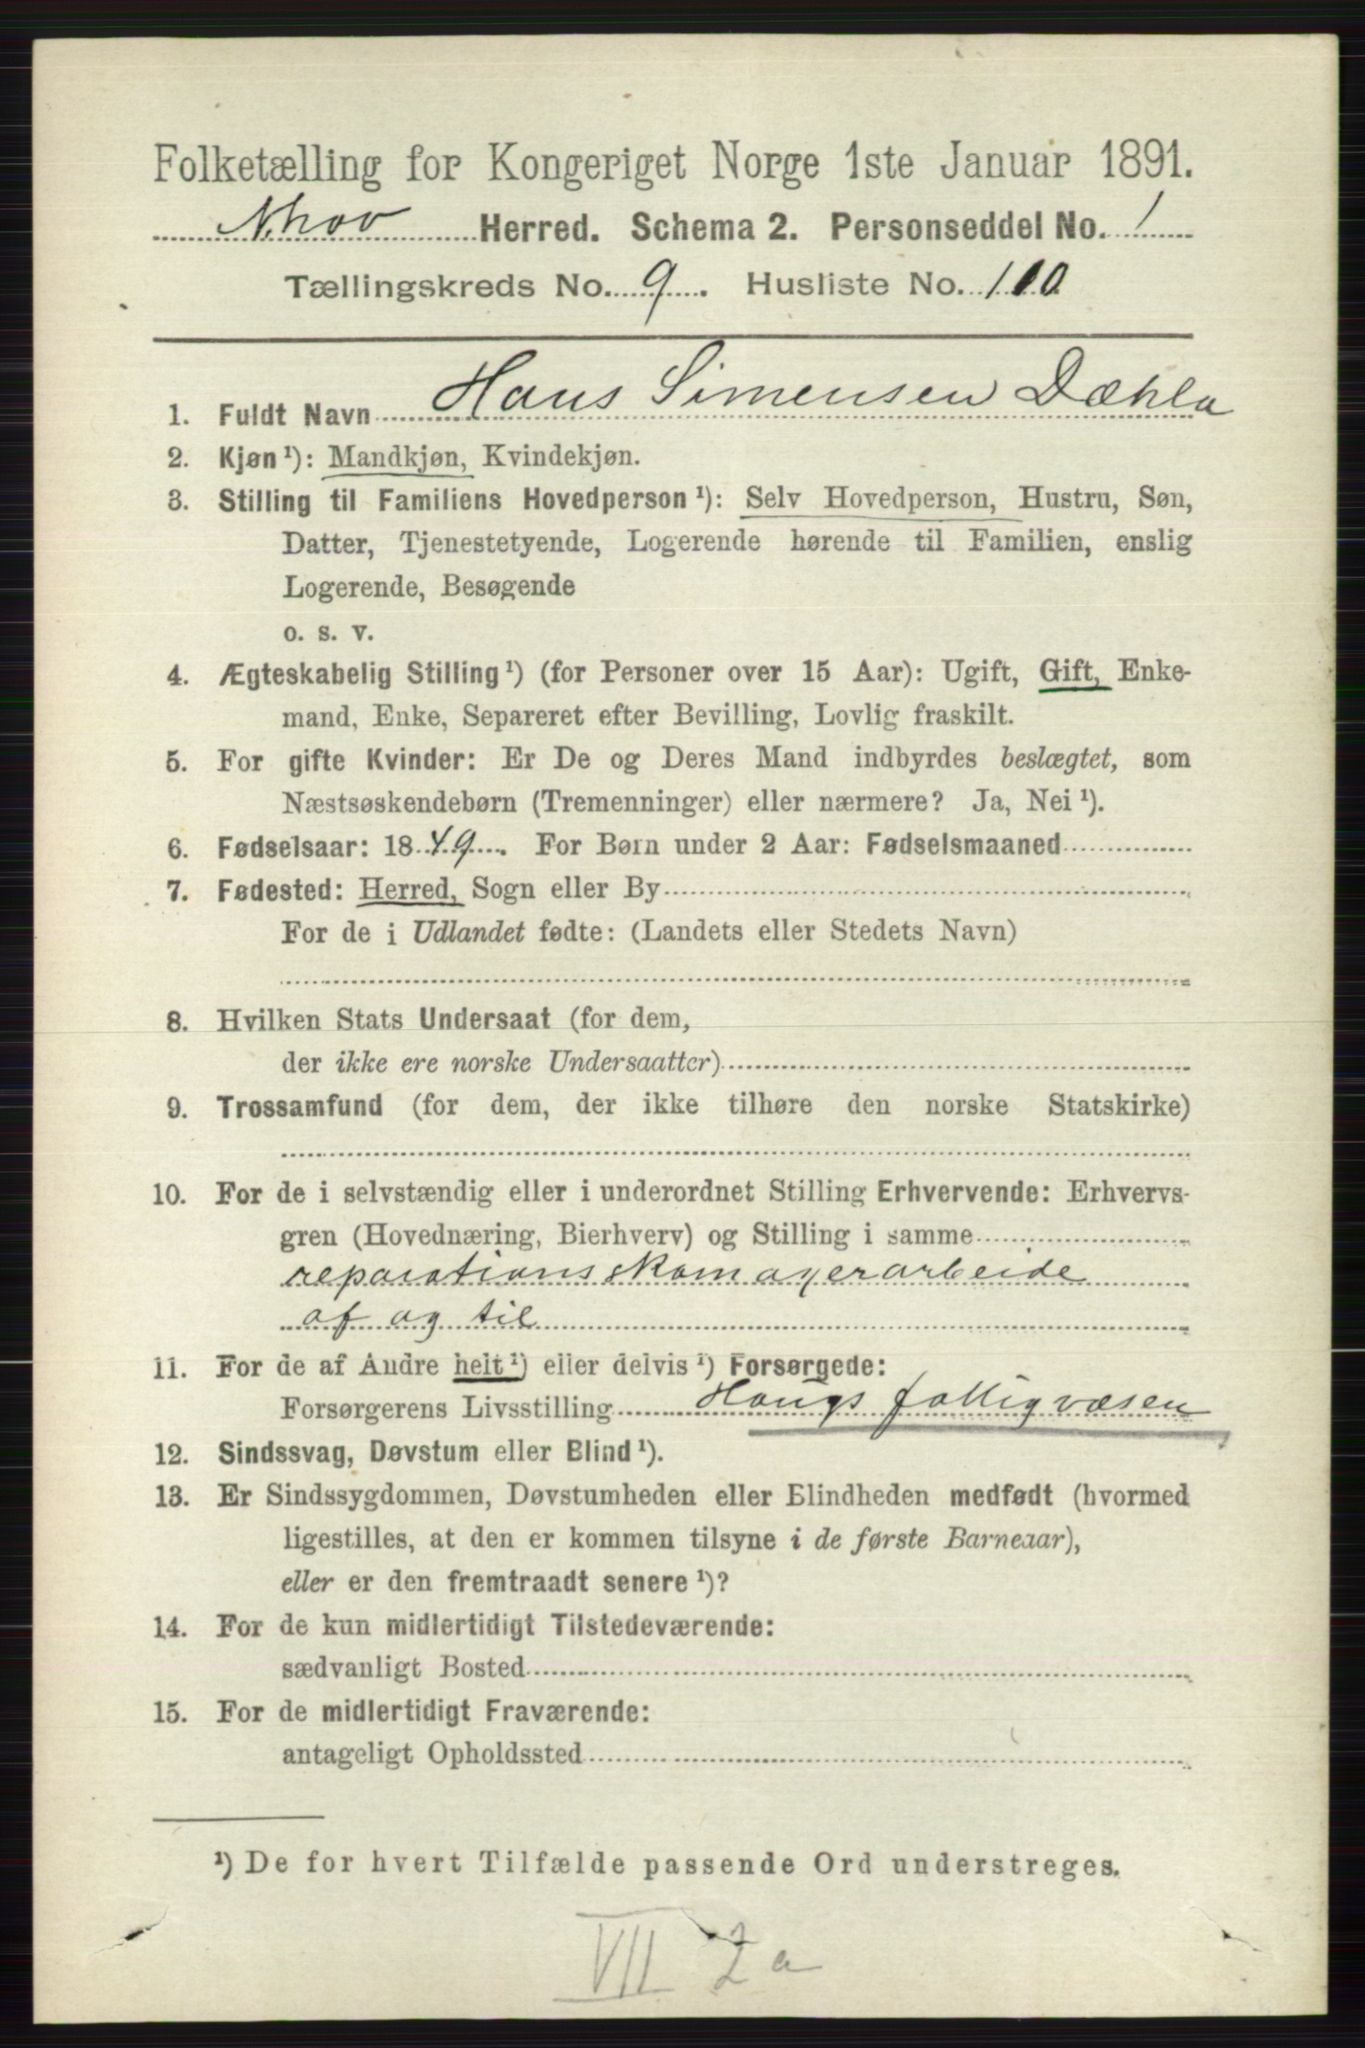 Folketælling for Kongeriget Norge 1ste Januar 1891.
Herred. Schema 2. Personseddel No. 1
Tællingskreds No. 9. Husliste No. 110
1. Fuldt Navn Hans Simensen Dæhle
2. Kjøn ¹): Mandkjøn, Kvindekjøn.
3. Stilling til Familiens Hovedperson ¹): Selv Hovedperson, Hustru, Søn,
Datter, Tjenestetyende, Logerende hørende til Familien, enslig
Logerende, Besøgende
o. s. v.
4. Ægteskabelig Stilling ¹) (for Personer over 15 Aar): Ugift, Gift, Enke-
mand, Enke, Separeret efter Bevilling, Lovlig fraskilt.
5. For gifte Kvinder: Er De og Deres Mand indbyrdes beslægtet, som
Næstsøskendebørn (Tremenninger) eller nærmere? Ja, Nei ¹).
6. Fødselsaar: 1849. For Børn under 2 Aar: Fødselsmaaned
7. Fødested: Herred, Sogn eller By
For de i Udlandet fødte: (Landets eller Stedets Navn)
8. Hvilken Stats Undersaat (for dem,
der ikke ere norske Undersaatter)
9. Trossamfund (for dem, der ikke tilhøre den norske Statskirke)
10. For de i selvstændig eller i underordnet Stilling Erhvervende: Erhvervs-
gren (Hovednæring, Bierhverv) og Stilling i samme
reparationsskomagerarbeide
af og til
11. For de af Andre helt ¹) eller delvis ¹) Forsørgede:
Forsørgerens Livsstilling Hougs fattigvæsen
12. Sindssvag, Døvstum eller Blind ¹).
13. Er Sindssygdommen, Døvstumheden eller Blindheden medfødt (hvormed
ligestilles, at den er kommen tilsyne i de første Barneaar),
eller er den fremtraadt senere ¹)?
14. For de kun midlertidigt Tilstedeværende:
sædvanligt Bosted
15. For de midlertidigt Fraværende:
antageligt Opholdssted
¹) De for hvert Tilfælde passende Ord understreges.
VII 2a